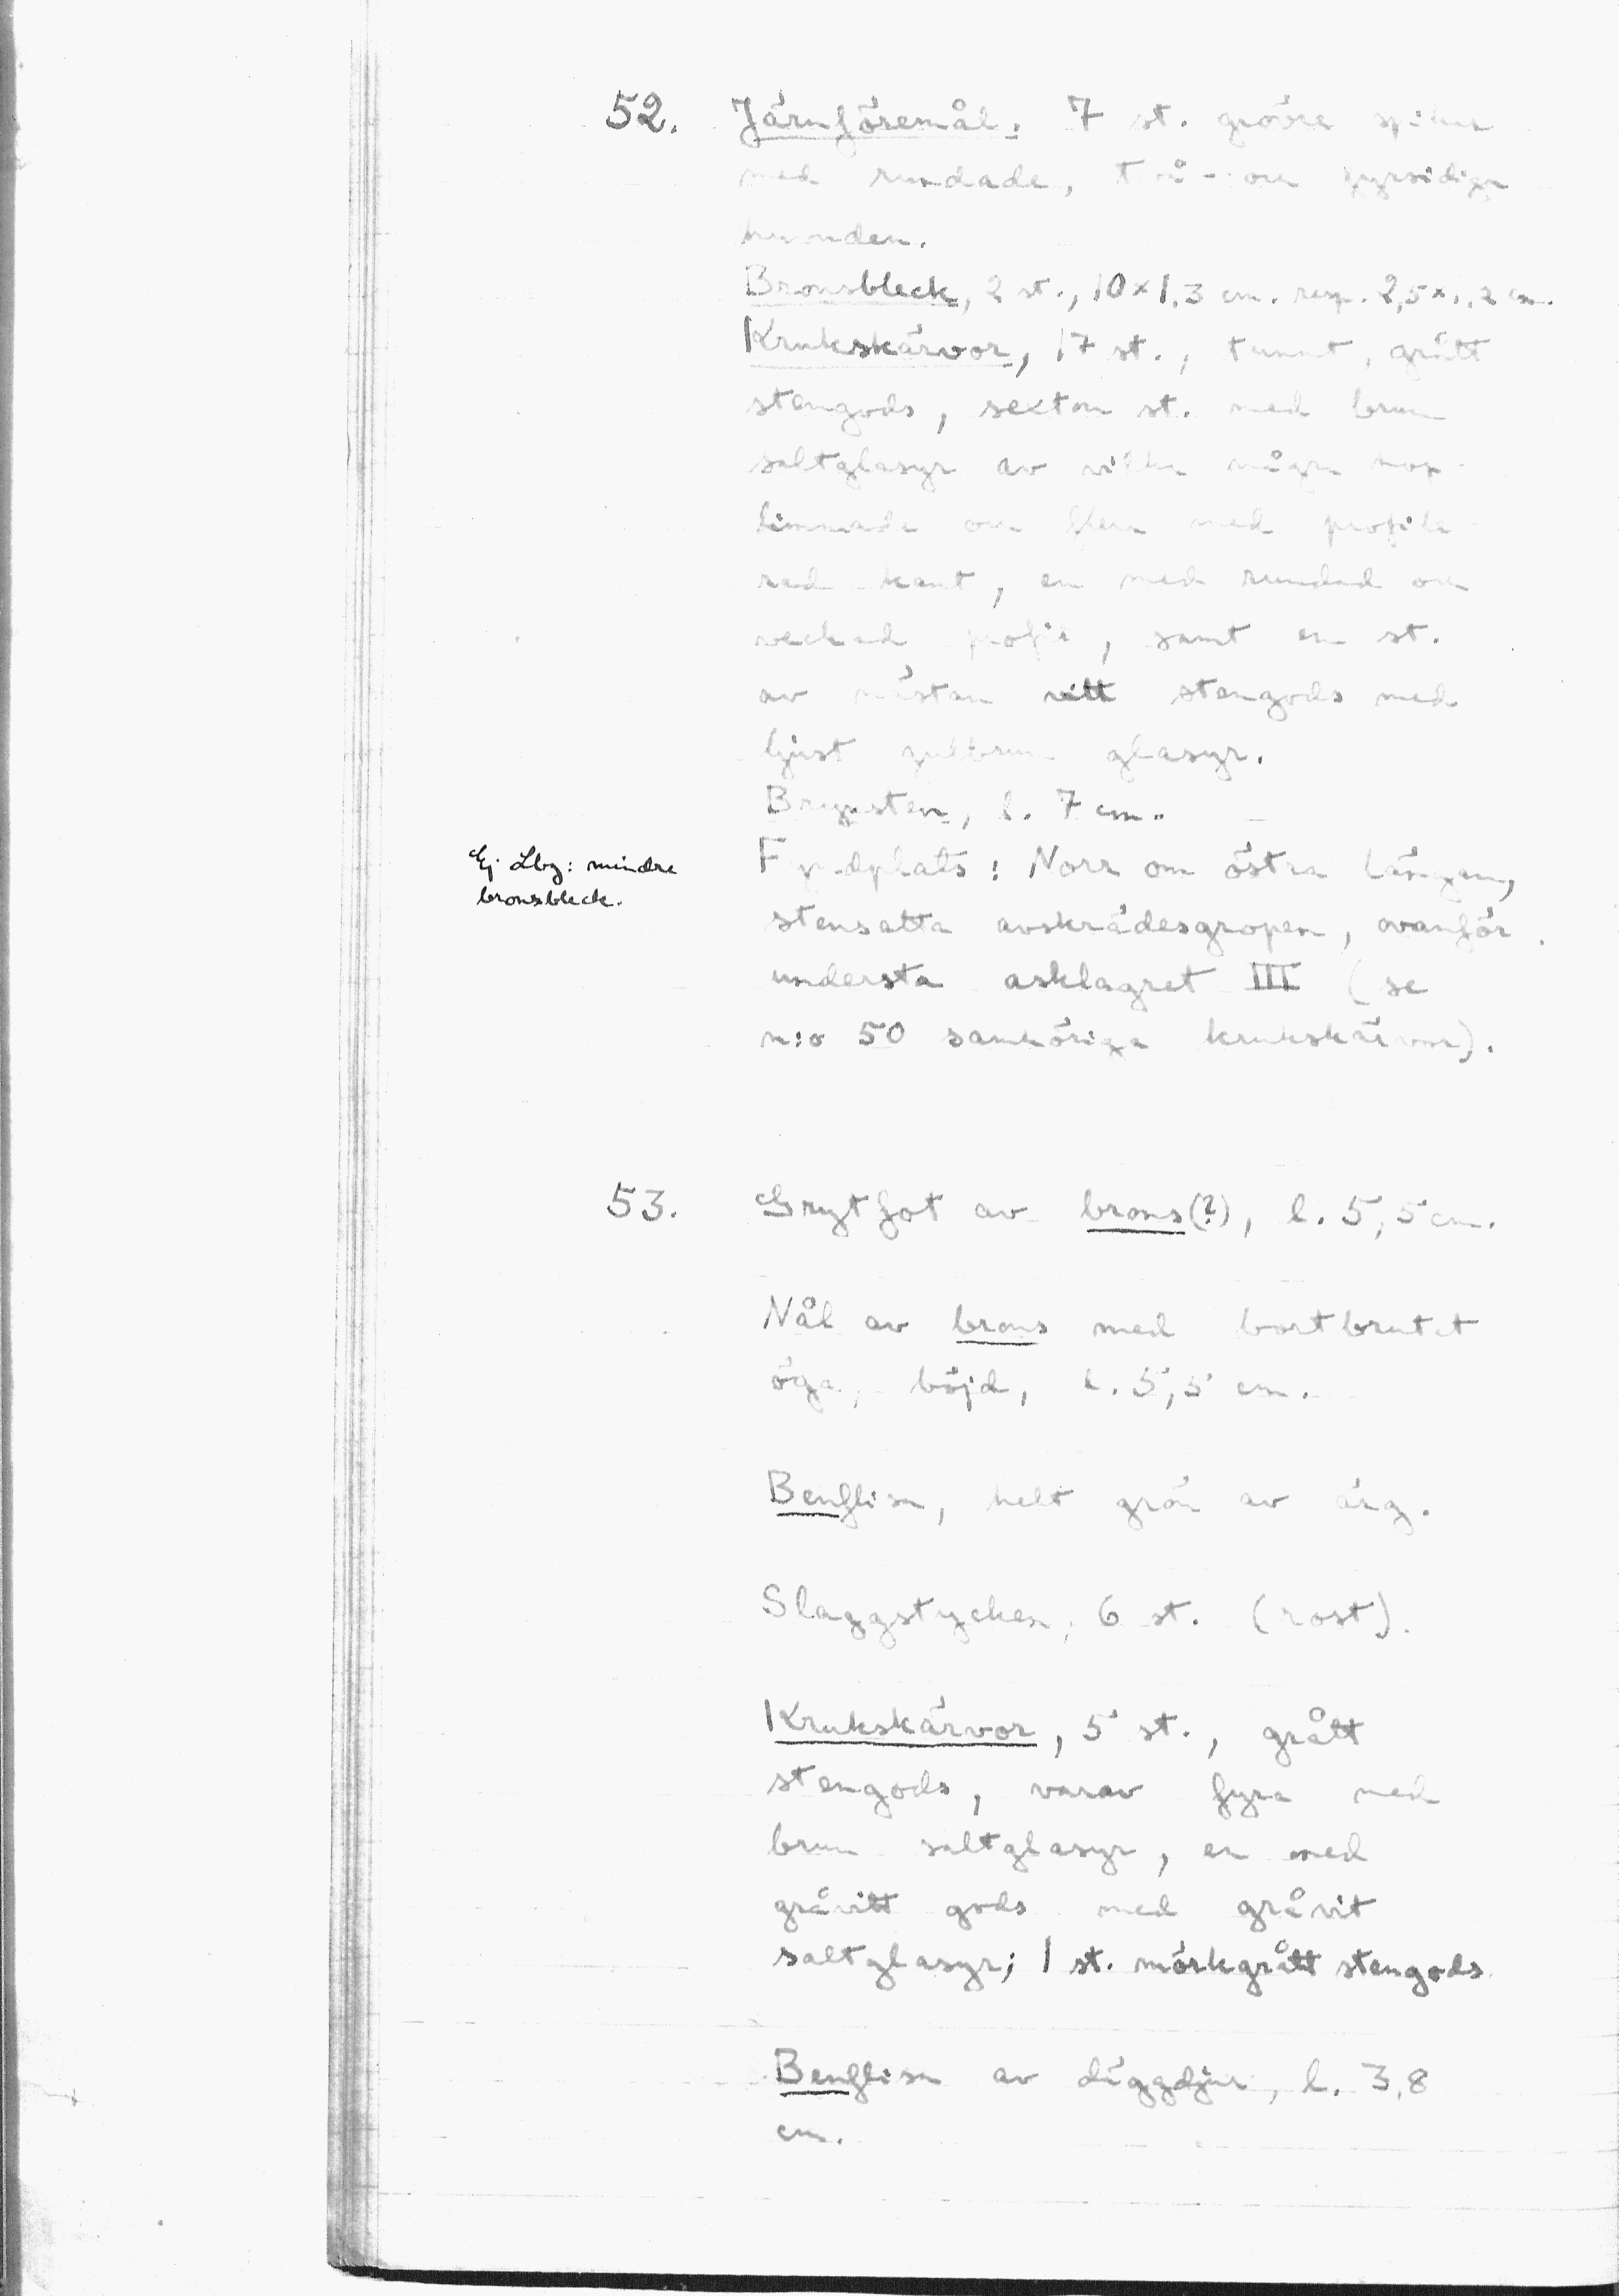 52. Järnföremål. 7 st. grövre spikar
med rundade, två- och fyrsidiga
huvuden.
Bronsbleck, 2 st., 10 x 1,3 cm. resp. 2,5 x 1,2 cm.
Krukskärvor, 17 st., tunnt, grått
stengods, sexton st. med brun
saltglasyr av vilka några hop-
limmade och flera med profile-
rad kant, en med rundad och
veckad profil, samt en st.
av nästan vitt stengods med
ljust gulbrun glasyr.
Brynsten, l. 7 cm.
Ej Lbg: mindre
bronsbleck.
Fyndplats: Norr om östra längan,
stensatta avskrädesgropen, ovanför
understa asklagret III (se
n:o 50 samhöriga krukskärvor).
53. Grytfot av brons(?), l. 5,5 cm.
Nål av brons med bortbrutet
öga, böjd, l. 5,5 cm.
Benflisa, helt grön av ärg.
Slaggstycken, 6 st. (rost).
Krukskärvor, 5 st., grått
stengods, varav fyra med
brun saltglasyr, en med
gråvitt gods med gråvit
saltglasyr; 1 st. mörkgrått stengods
Benflisa av däggdjur, l. 3,8
cm.